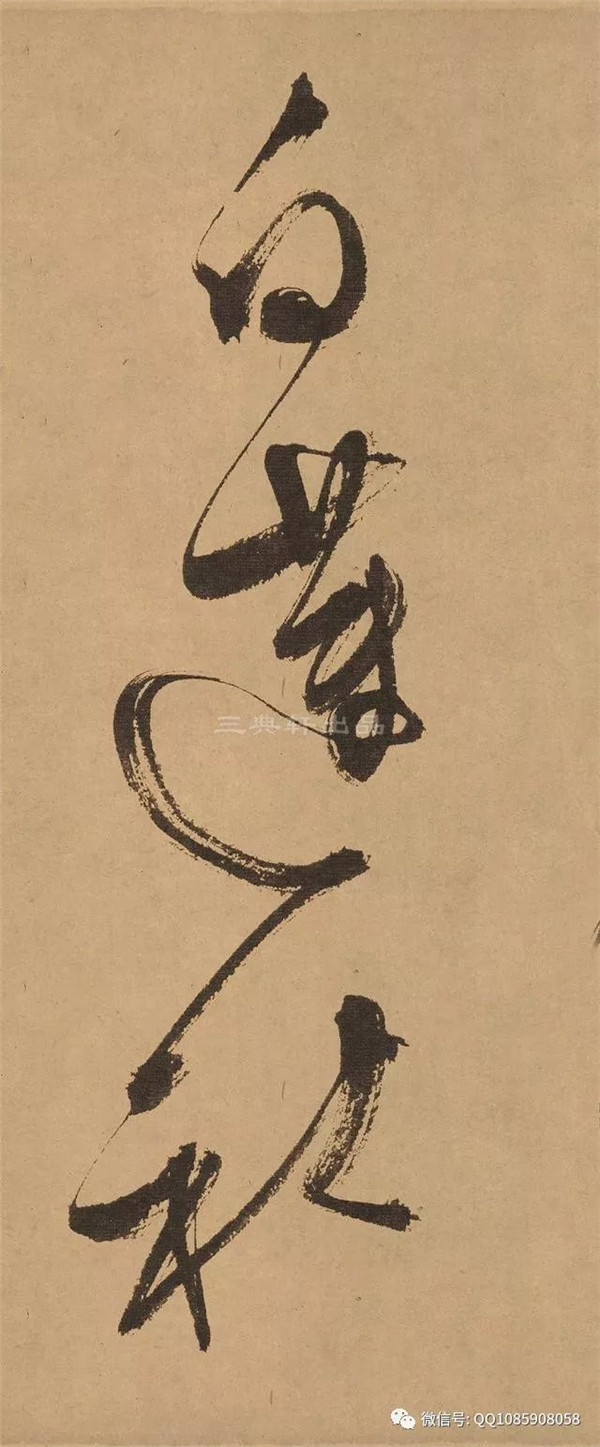 白蓮社
三典轩出品
微信号: QQ1085908058